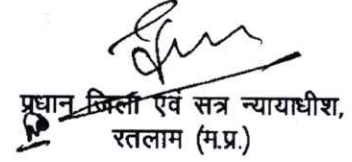 प्रधान जिला एवं सत्र न्यायाधीश,
रतलाम (म.प्र.)